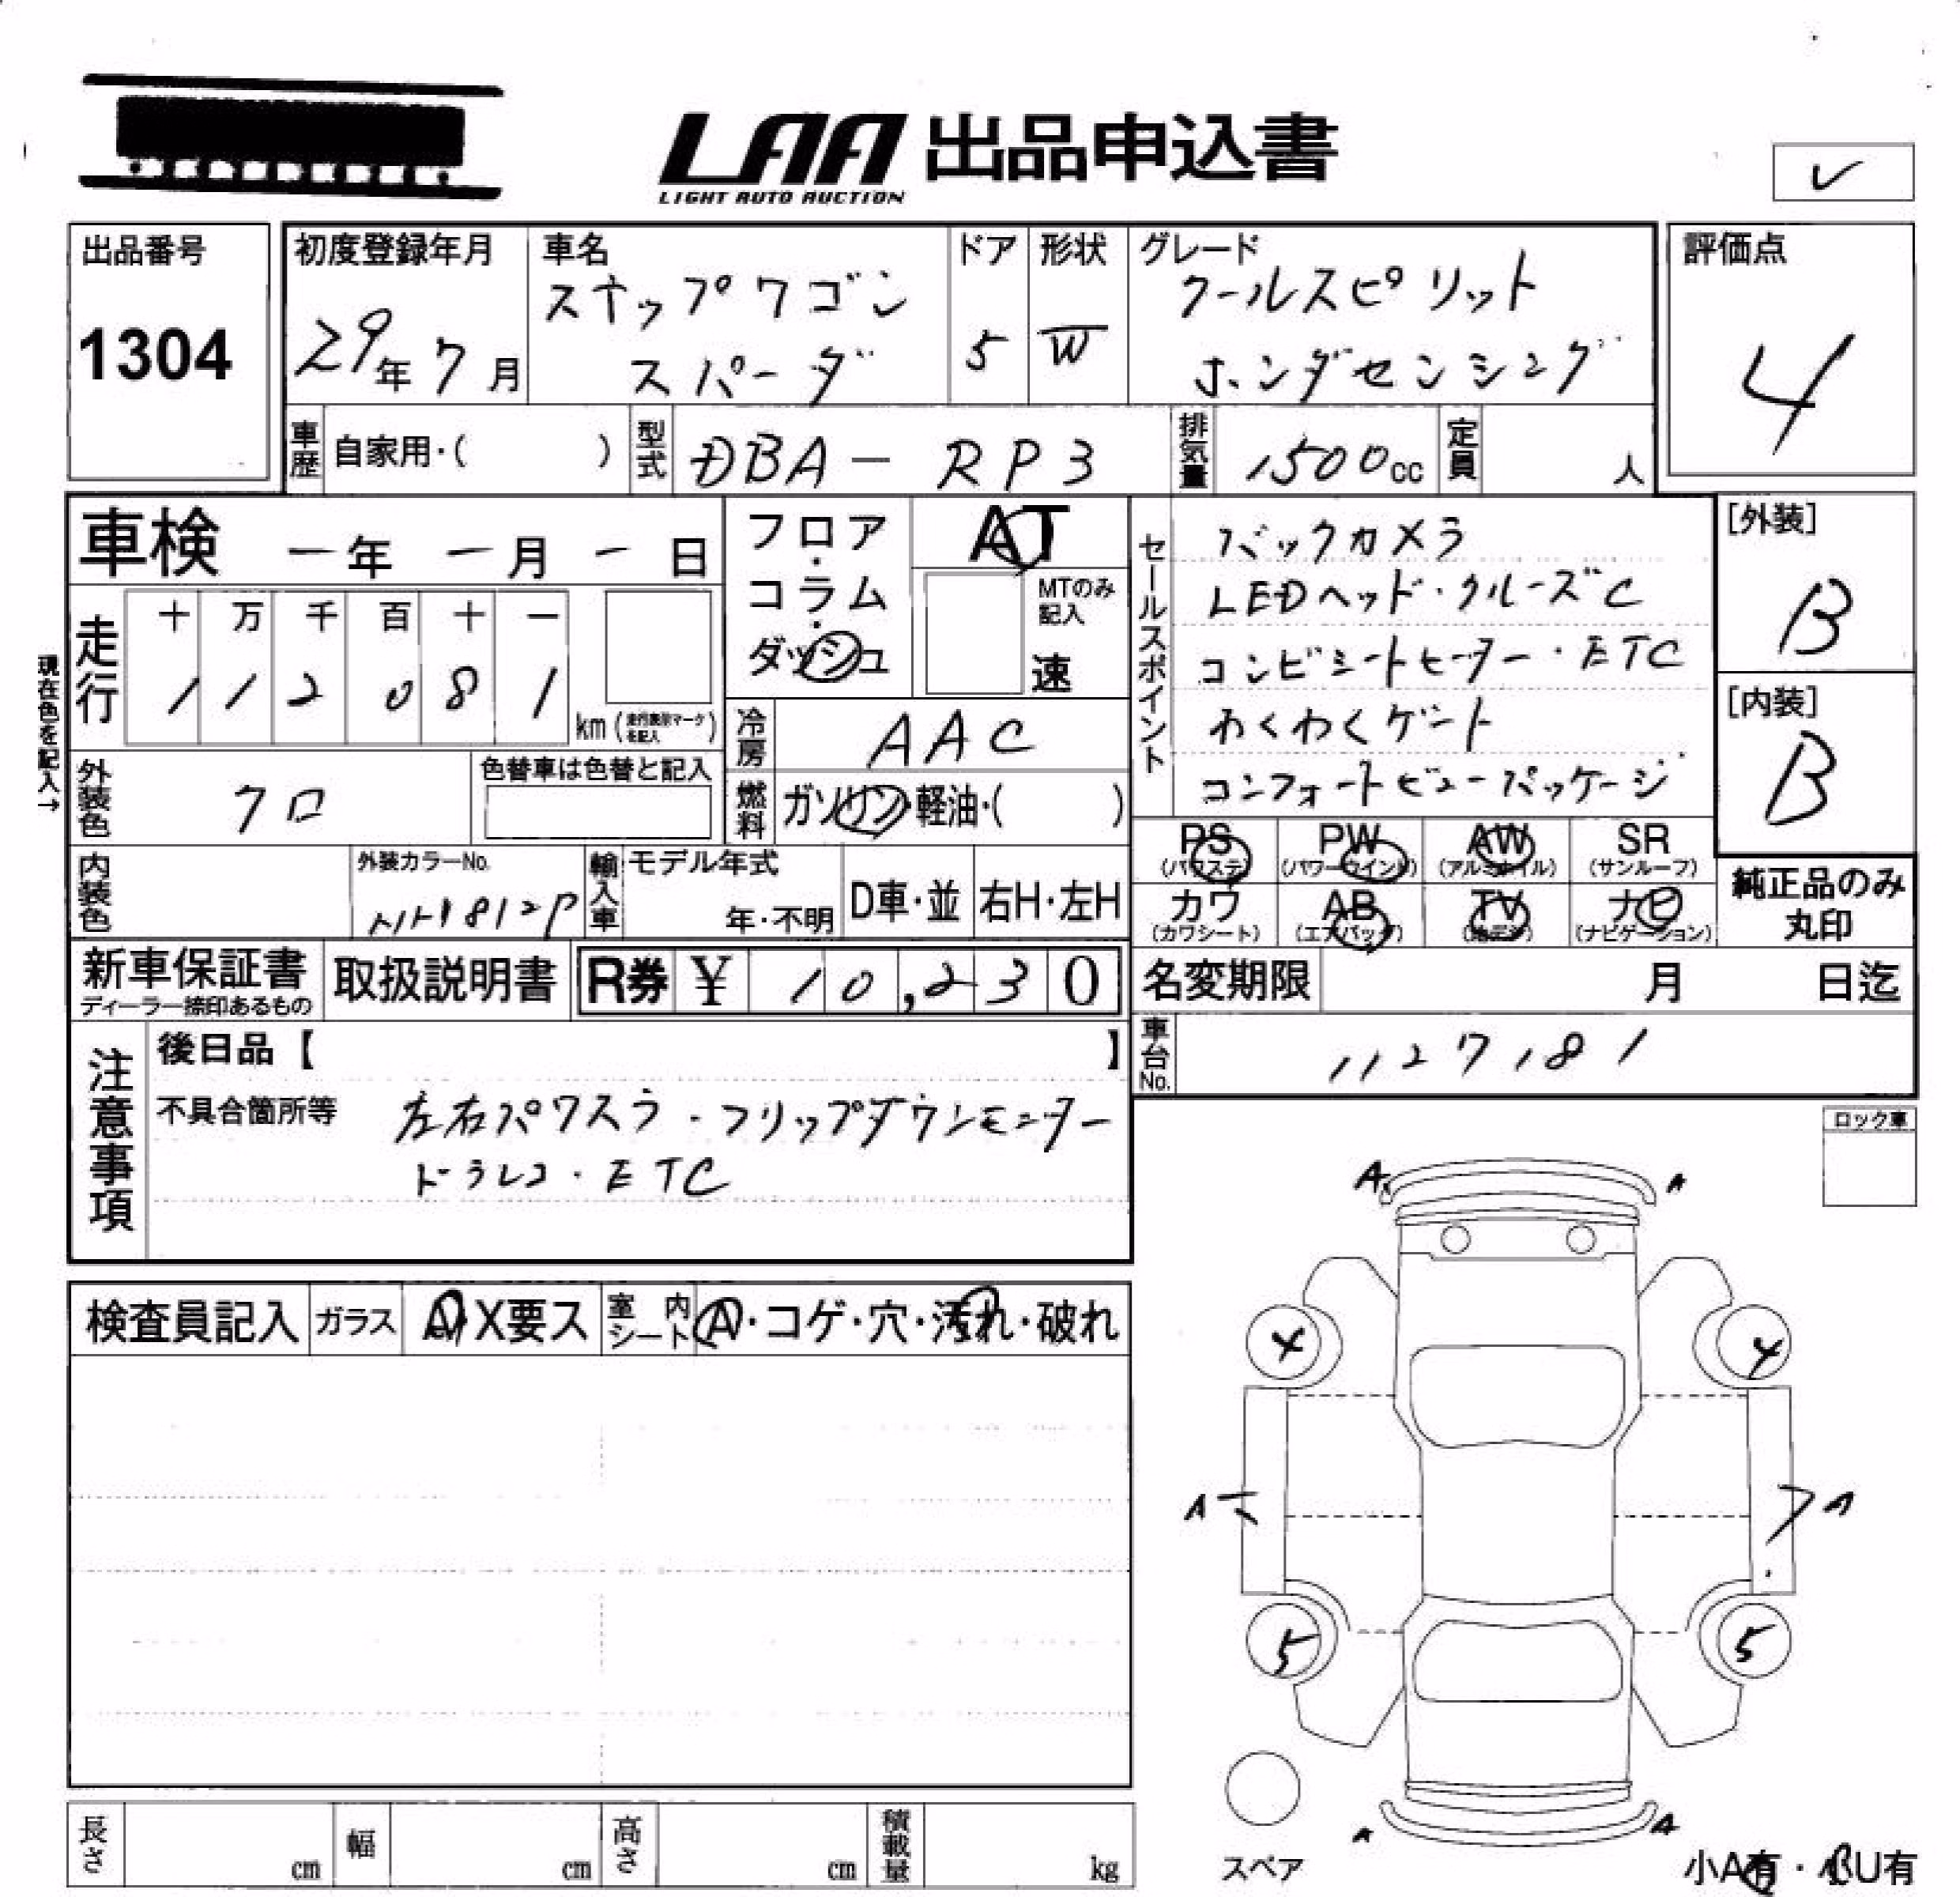 LAA 出品申込書
LIGHT AUTO AUCTION
出品番号
1304
初度登録年月
29年7月
車名
ステップワゴン
スパーダ
ドア
5
形状
W
グレード
クールスピリット
ホンダセンシング
評価点
4
車歴
自家用・( )
型式
DBA-RP3
排気量
1500cc
定員
人
車検 ー年 ー月 ー日
走行
十 万 千 百 十 一
1 1 2 0 8 1
km
現在色を記入→
フロア・コラム・ダッシュ
AT
MTのみ記入
速
冷房
AAC
燃料
ガソリン・軽油・( )
外装色
クロ
色替車は色替と記入
セールスポイント
バックカメラ
LEDヘッド・クルーズC
コンビシートヒーター・ETC
わくわくゲート
コンフォートビューパッケージ
[外装]
B
[内装]
B
PS PW AW SR
(パワステ) (パワーウインド) (アルミホイル) (サンルーフ)
カワ AB TV ナビ
(カワシート) (エアバッグ) (ナビゲーション)
純正品のみ
丸印
内装色
外装カラーNo.
輸入車
モデル年式
年・不明
D車・並
右H・左H
新車保証書
ディーラー捺印あるもの
取扱説明書
R券 ¥ 10,230
名変期限
月 日迄
車台No.
1127181
注意事項
後日品【 】
不具合箇所等
左右パワスラ・フリップダウンモニター
ドラレコ・ETC
ロック車
検査員記入
ガラス
A X要ス
室内シート
A・コゲ・穴・汚れ・破れ
A A
4 4
A A
5 5
A A
スペア
長さ cm
幅 cm
高さ cm
積載量 kg
小A有・小U有